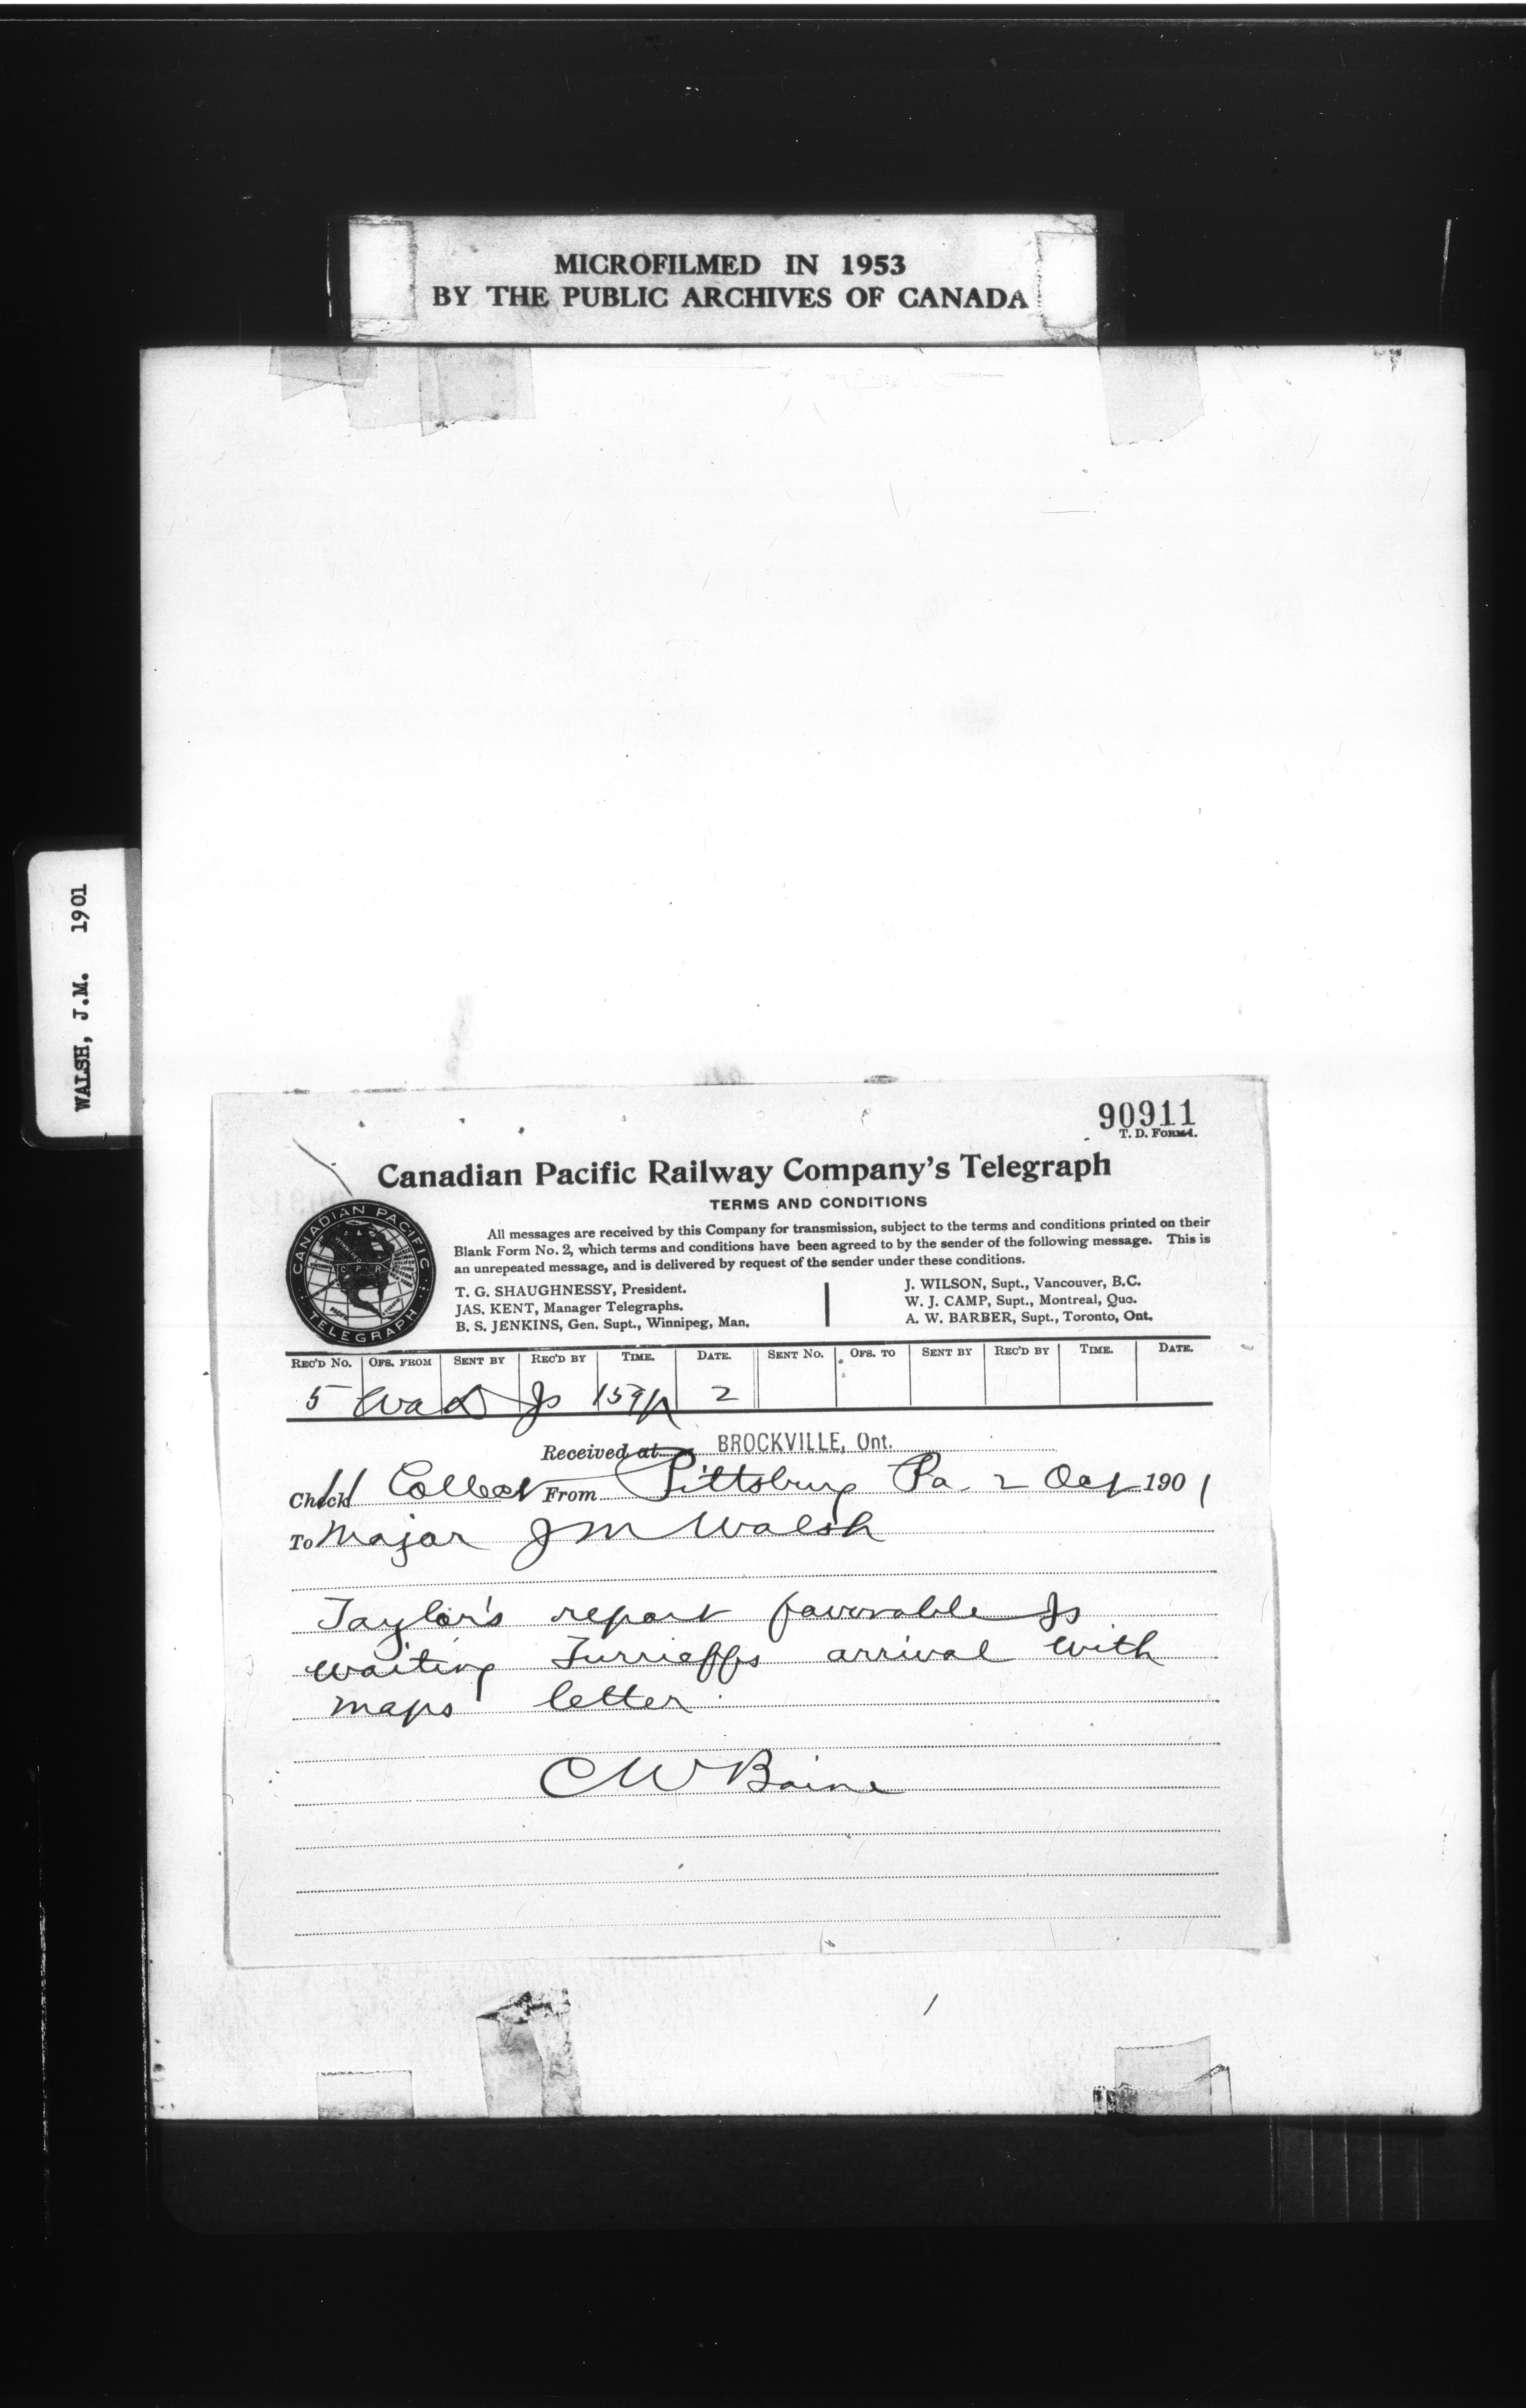 MICROFILMED IN 1953
BY THE PUBLIC ARCHIVES OF CANADA
WALSH, J.M. 1901
90911
T. D. FORM 1.
Canadian Pacific Railway Company's Telegraph
TERMS AND CONDITIONS
All messages are received by this Company for transmission, subject to the terms and conditions printed on their
Blank Form No. 2, which terms and conditions have been agreed to by the sender of the following message. This is
an unrepeated message, and is delivered by request of the sender under these conditions.
CANADIAN PACIFIC
C P R
TELEGRAPH
T. G. SHAUGHNESSY, President.
JAS. KENT, Manager Telegraphs.
B. S. JENKINS, Gen. Supt., Winnipeg, Man.
J. WILSON, Supt., Vancouver, B.C.
W. J. CAMP, Supt., Montreal, Que.
A. W. BARBER, Supt., Toronto, Ont.
REC'D NO. OFS. FROM SENT BY REC'D BY TIME. DATE. SENT NO. OFS. TO SENT BY REC'D BY TIME. DATE.
5 Wa D Js 159p 2
Received at BROCKVILLE, Ont.
Check 11 Collect From Pittsburg Pa. 2 Oct 1901
To Major J M Walsh
Taylor's report favorable Is
waiting arrival with
maps letter
C W Baine